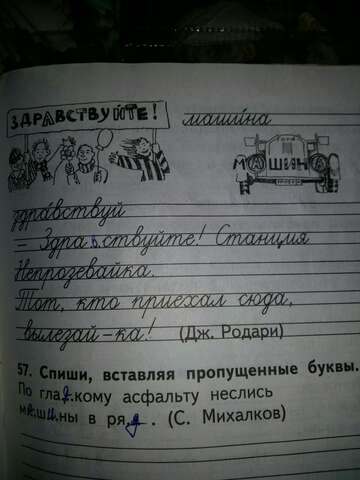 ЗДРАВСТВУЙТЕ!
машина
МАШИНА
здравствуй
– Здравствуйте! Станция
Непрозевайка.
Тот, кто приехал сюда,
вылезай-ка! (Дж. Родари)
57. Спиши, вставляя пропущенные буквы.
По гла.д.кому асфальту неслись
м.а.ш.и.ны в ря.д. . (С. Михалков)